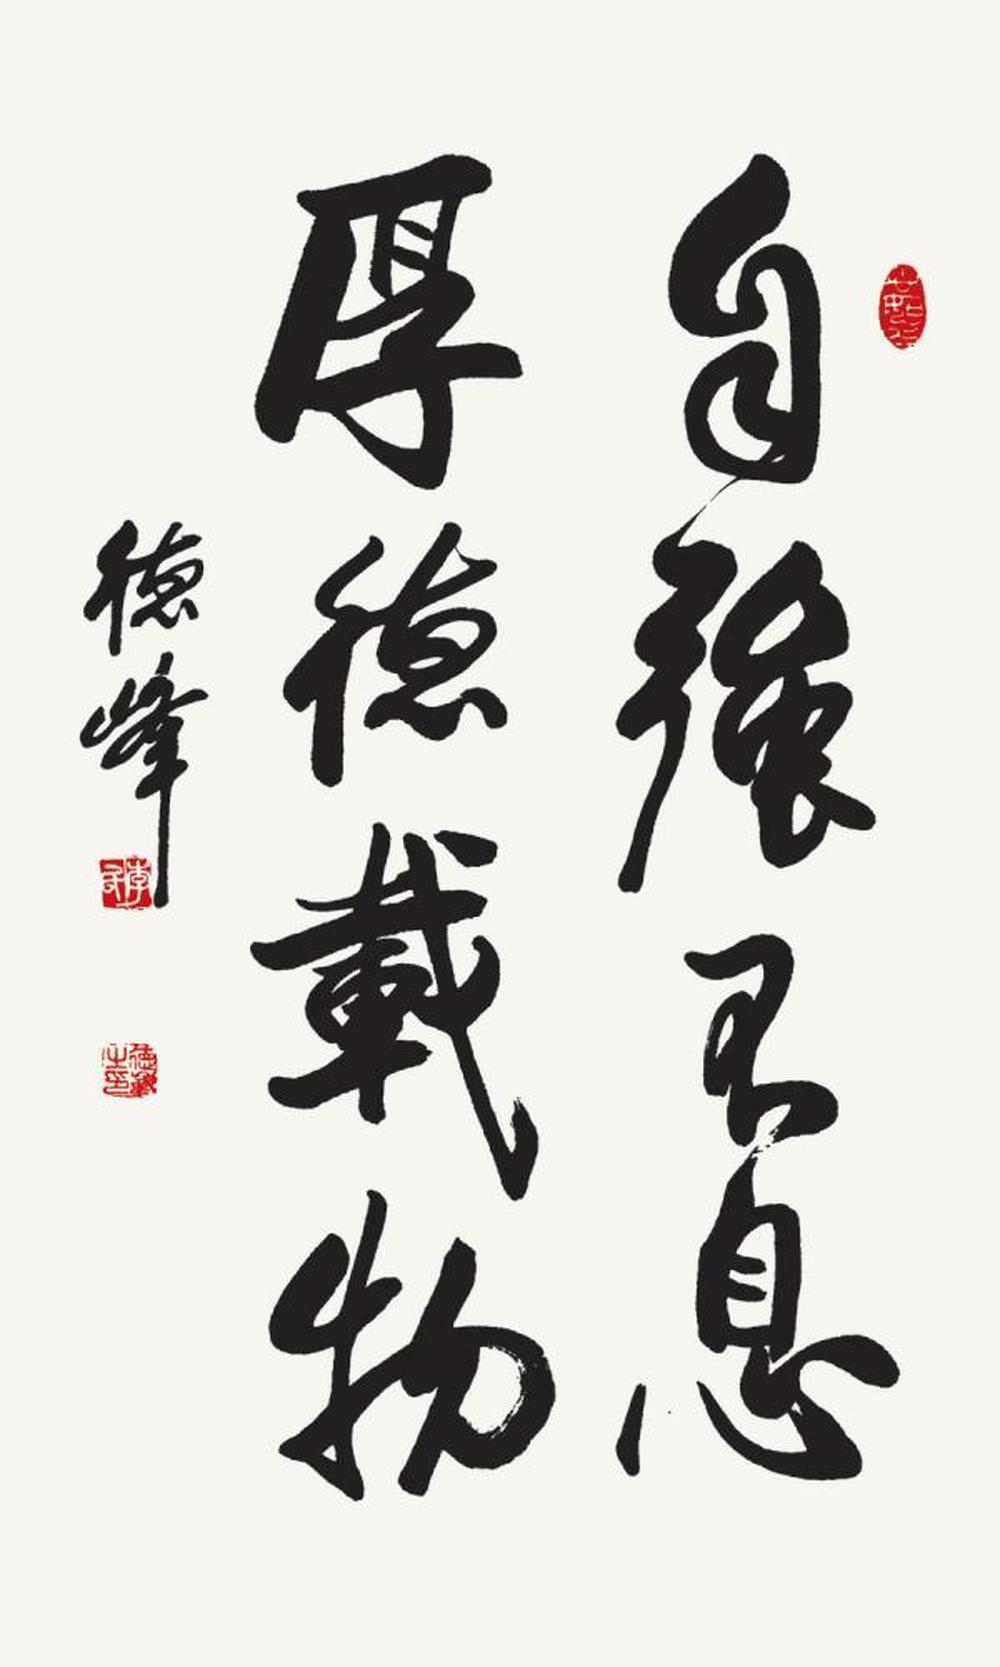 自強不息
厚德載物
德峰